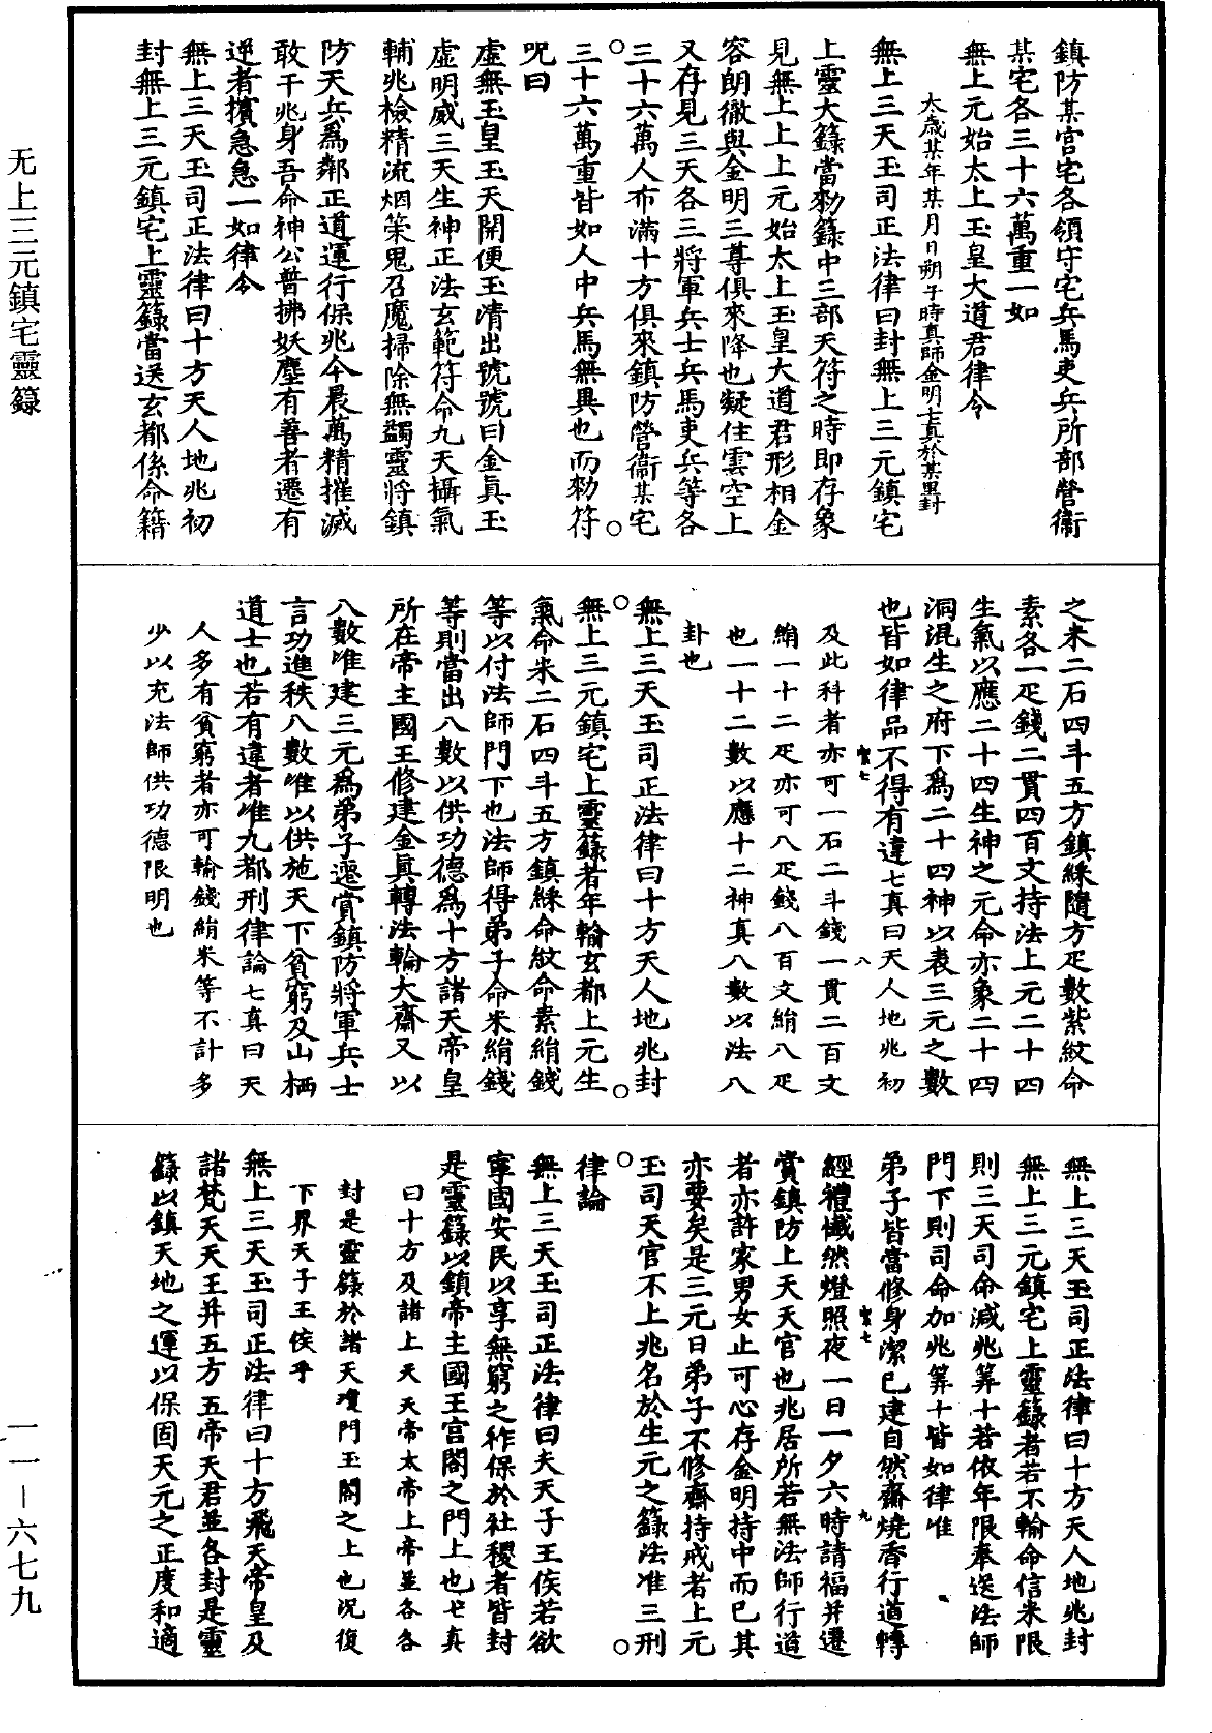 鎮防某宮宅各領守宅兵馬吏兵所部營衛
某宅各三十六萬重一如
無上元始太上玉皇大道君律令
太歲某年某月日朔子時真師金明七真於某里封
無上三天玉司正法律曰封無上三元鎮宅
上靈大籙當勑籙中三部天符之時即存象
見無上上上元始太上玉皇大道君形相金
容朗徹與金明三尊俱來降也凝住雲空上
又存見三天各三將軍兵士兵馬吏兵等各
三十六萬人布滿十方俱來鎮防營衛某宅
三十六萬重皆如人中兵馬無異也而勑符
呪曰
虛無玉皇玉天開便玉清出號號曰金真玉
虛明威三天生神正法玄範符命九天攝氣
輔兆檢精流烟策鬼召魔掃除無蠲靈將鎮
防天兵為鄰正道運行保兆今晨萬精摧滅
敢干兆身吾命神公普拂妖塵有善者遷有
逆者擯急急一如律令
無上三天玉司正法律曰十方天人地兆初
封無上三元鎮宅上靈籙當送玄都係命籍
之米二石四斗五方鎮綵隨方疋數紫紋命
素各一疋錢二貫四百文持法上元二十四
生氣以應二十四生神之元命亦象二十四
洞混生之府下為二十四神以表三元之數
也皆如律品不得有違七真曰天人地兆初
及此科者亦可一石二斗錢一貫二百文
絹一十二疋亦可八疋錢八百文絹八疋
也一十二數以應十二神真八數以法八
卦也
無上三天玉司正法律曰十方天人地兆封
無上三元鎮宅上靈籙者年輸玄都上元生
氣命米二石四斗五方鎮綵命紋命素絹錢
等以付法師門下也法師得弟子命米絹錢
等則當出八數以供功德為十方諸天帝皇
所在帝主國王修建金真轉法輪大齋又以
八數唯建三元為弟子遷賞鎮防將軍兵士
言功進秩八數唯以供施天下貧窮及山栖
道士也若有違者唯九都刑律論七真曰天
人多有貧窮者亦可輸錢絹米等不計多
少以充法師供功德限明也
無上三天玉司正法律曰十方天人地兆封
無上三元鎮宅上靈籙者若不輸命信米限
則三天司命減兆筭十若依年限奉送法師
門下則司命加兆筭十皆如律唯
弟子皆當修身潔己建自然齋燒香行道轉
經禮懺然燈照夜一日一夕六時請福并遷
賞鎮防上天天官也兆居所若無法師行道
者亦許家男女止可心存金明持中而已其
亦要矣是三元日弟子不修齋持戒者上元
玉司天官不上兆名於生元之籙法准三刑
律論
無上三天玉司正法律曰夫天子王侯若欲
寧國安民以享無窮之祚保於社稷者皆封
是靈籙以鎮帝主國王宮閣之門上也七真
曰十方及諸上天天帝太帝上帝並各各
封是靈籙於諸天瓊門玉閣之上也況復
下界天子王侯乎
無上三天玉司正法律曰十方飛天帝皇及
諸梵天天王并五方五帝天君並各封是靈
籙以鎮天地之運以保固天元之正度和適
无上三元鎮宅靈籙
一一－六七九